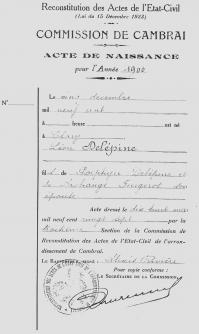 Reconstitution des Actes de l'Etat-Civil
(Loi du 15 Décembre 1923)
COMMISSION DE CAMBRAI
ACTE DE NAISSANCE
pour l'Année 1900
Le onze décembre
mil neuf cent
N°
à heure est né
à Cléry
Léon Delépine
fil de Porphyre Delépine et
de Archange Fougerol son
épouse
Acte dressé le dix huit mai
mil neuf cent vingt sept par la
troisième Section de la Commission de
Reconstitution des Actes de l'Etat-Civil de l'arron-
dissement de Cambrai.
Le Rapporteur, signé : Alexis Rivière
Pour copie conforme :
LE SECRÉTAIRE DE LA COMMISSION,